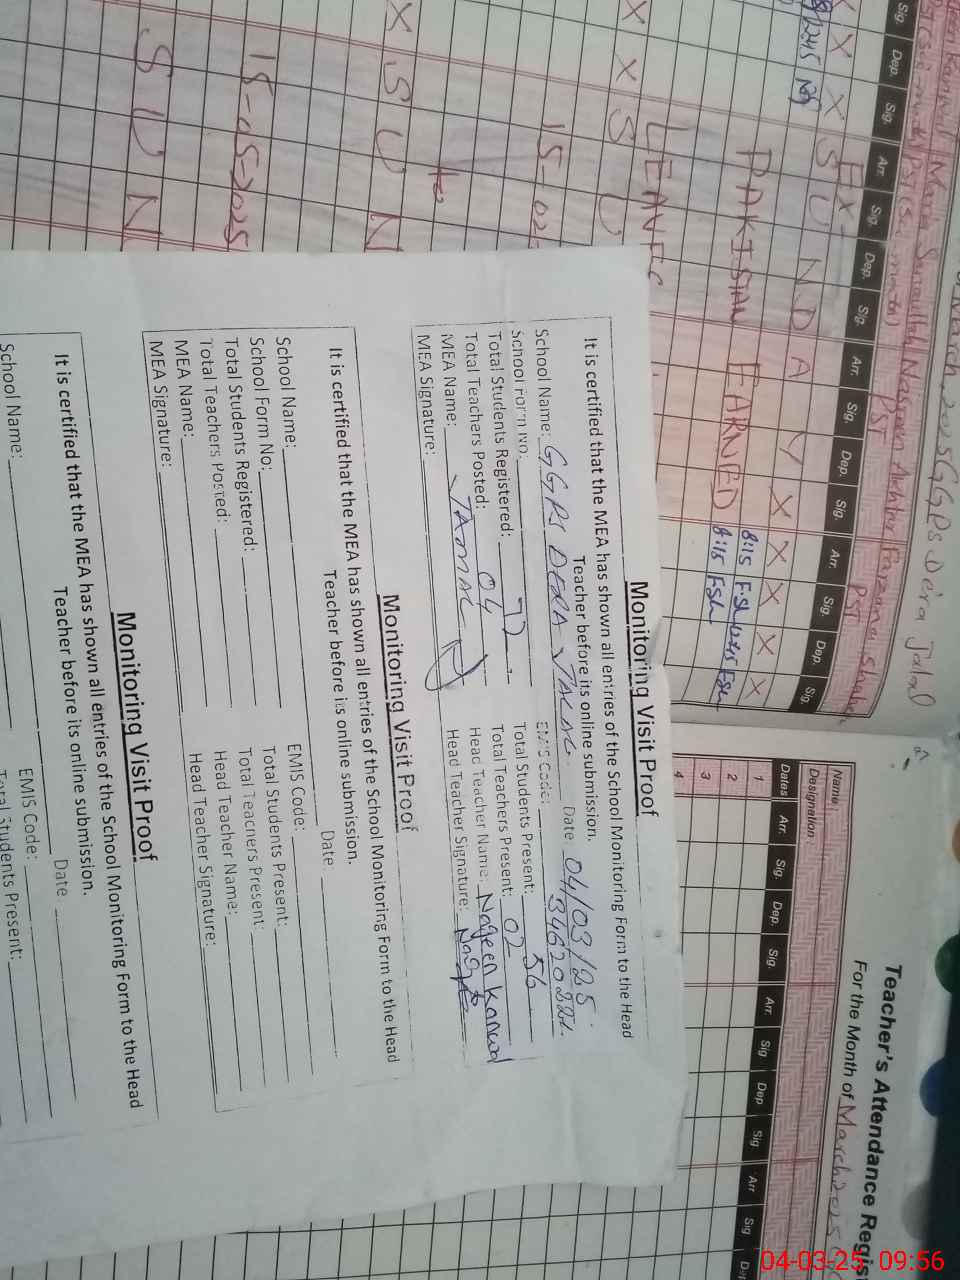 Monitoring Visit Proof
It is certified that the MEA has shown all entries of the School Monitoring Form to the Head
Teacher before its online submission.
Date 04/03/25
School Name: GGPS DERA JALAL EMIS Code: 34620221
School Form No. Total Students Present: 56
Total Students Registered: 77 Total Teachers Present: 02
Total Teachers Posted: 04 Head Teacher Name: Nageen Kanwal
MEA Name: Head Teacher Signature:
MEA Signature:
Monitoring Visit Proof
It is certified that the MEA has shown all entries of the School Monitoring Form to the Head
Teacher before its online submission.
Date
School Name: EMIS Code:
School Form No: Total Students Present:
Total Students Registered: Total Teachers Present:
Total Teachers Posted: Head Teacher Name:
MEA Name: Head Teacher Signature:
MEA Signature:
Monitoring Visit Proof
It is certified that the MEA has shown all entries of the School Monitoring Form to the Head
Teacher before its online submission.
Date
School Name: EMIS Code:
Total Students Present:
Teacher's Attendance Regis
For the Month of March 2025
Name
Designation
Dates Arr. Sig. Dep. Sig. Arr. Sig Dep Sig Arr Sig Dep
1
2
3
4
March 2025 GGPS Dera Jalal
Nasreen Akhtar Farzana Shaheen
PST PST
Sig. Dep. Sig. Arr. Sig. Dep. Sig. Arr. Sig. Dep. Sig. Arr. Sig. Dep. Sig.
X X X X X
SUNDAY
PAKISTAN EARNED
LEAVE
8:15 FSh 12:45 FSh
8:15 FSh
X X S U
15-02-
to
X S U N
15-05-2025
S U N
04-03-25 09:56